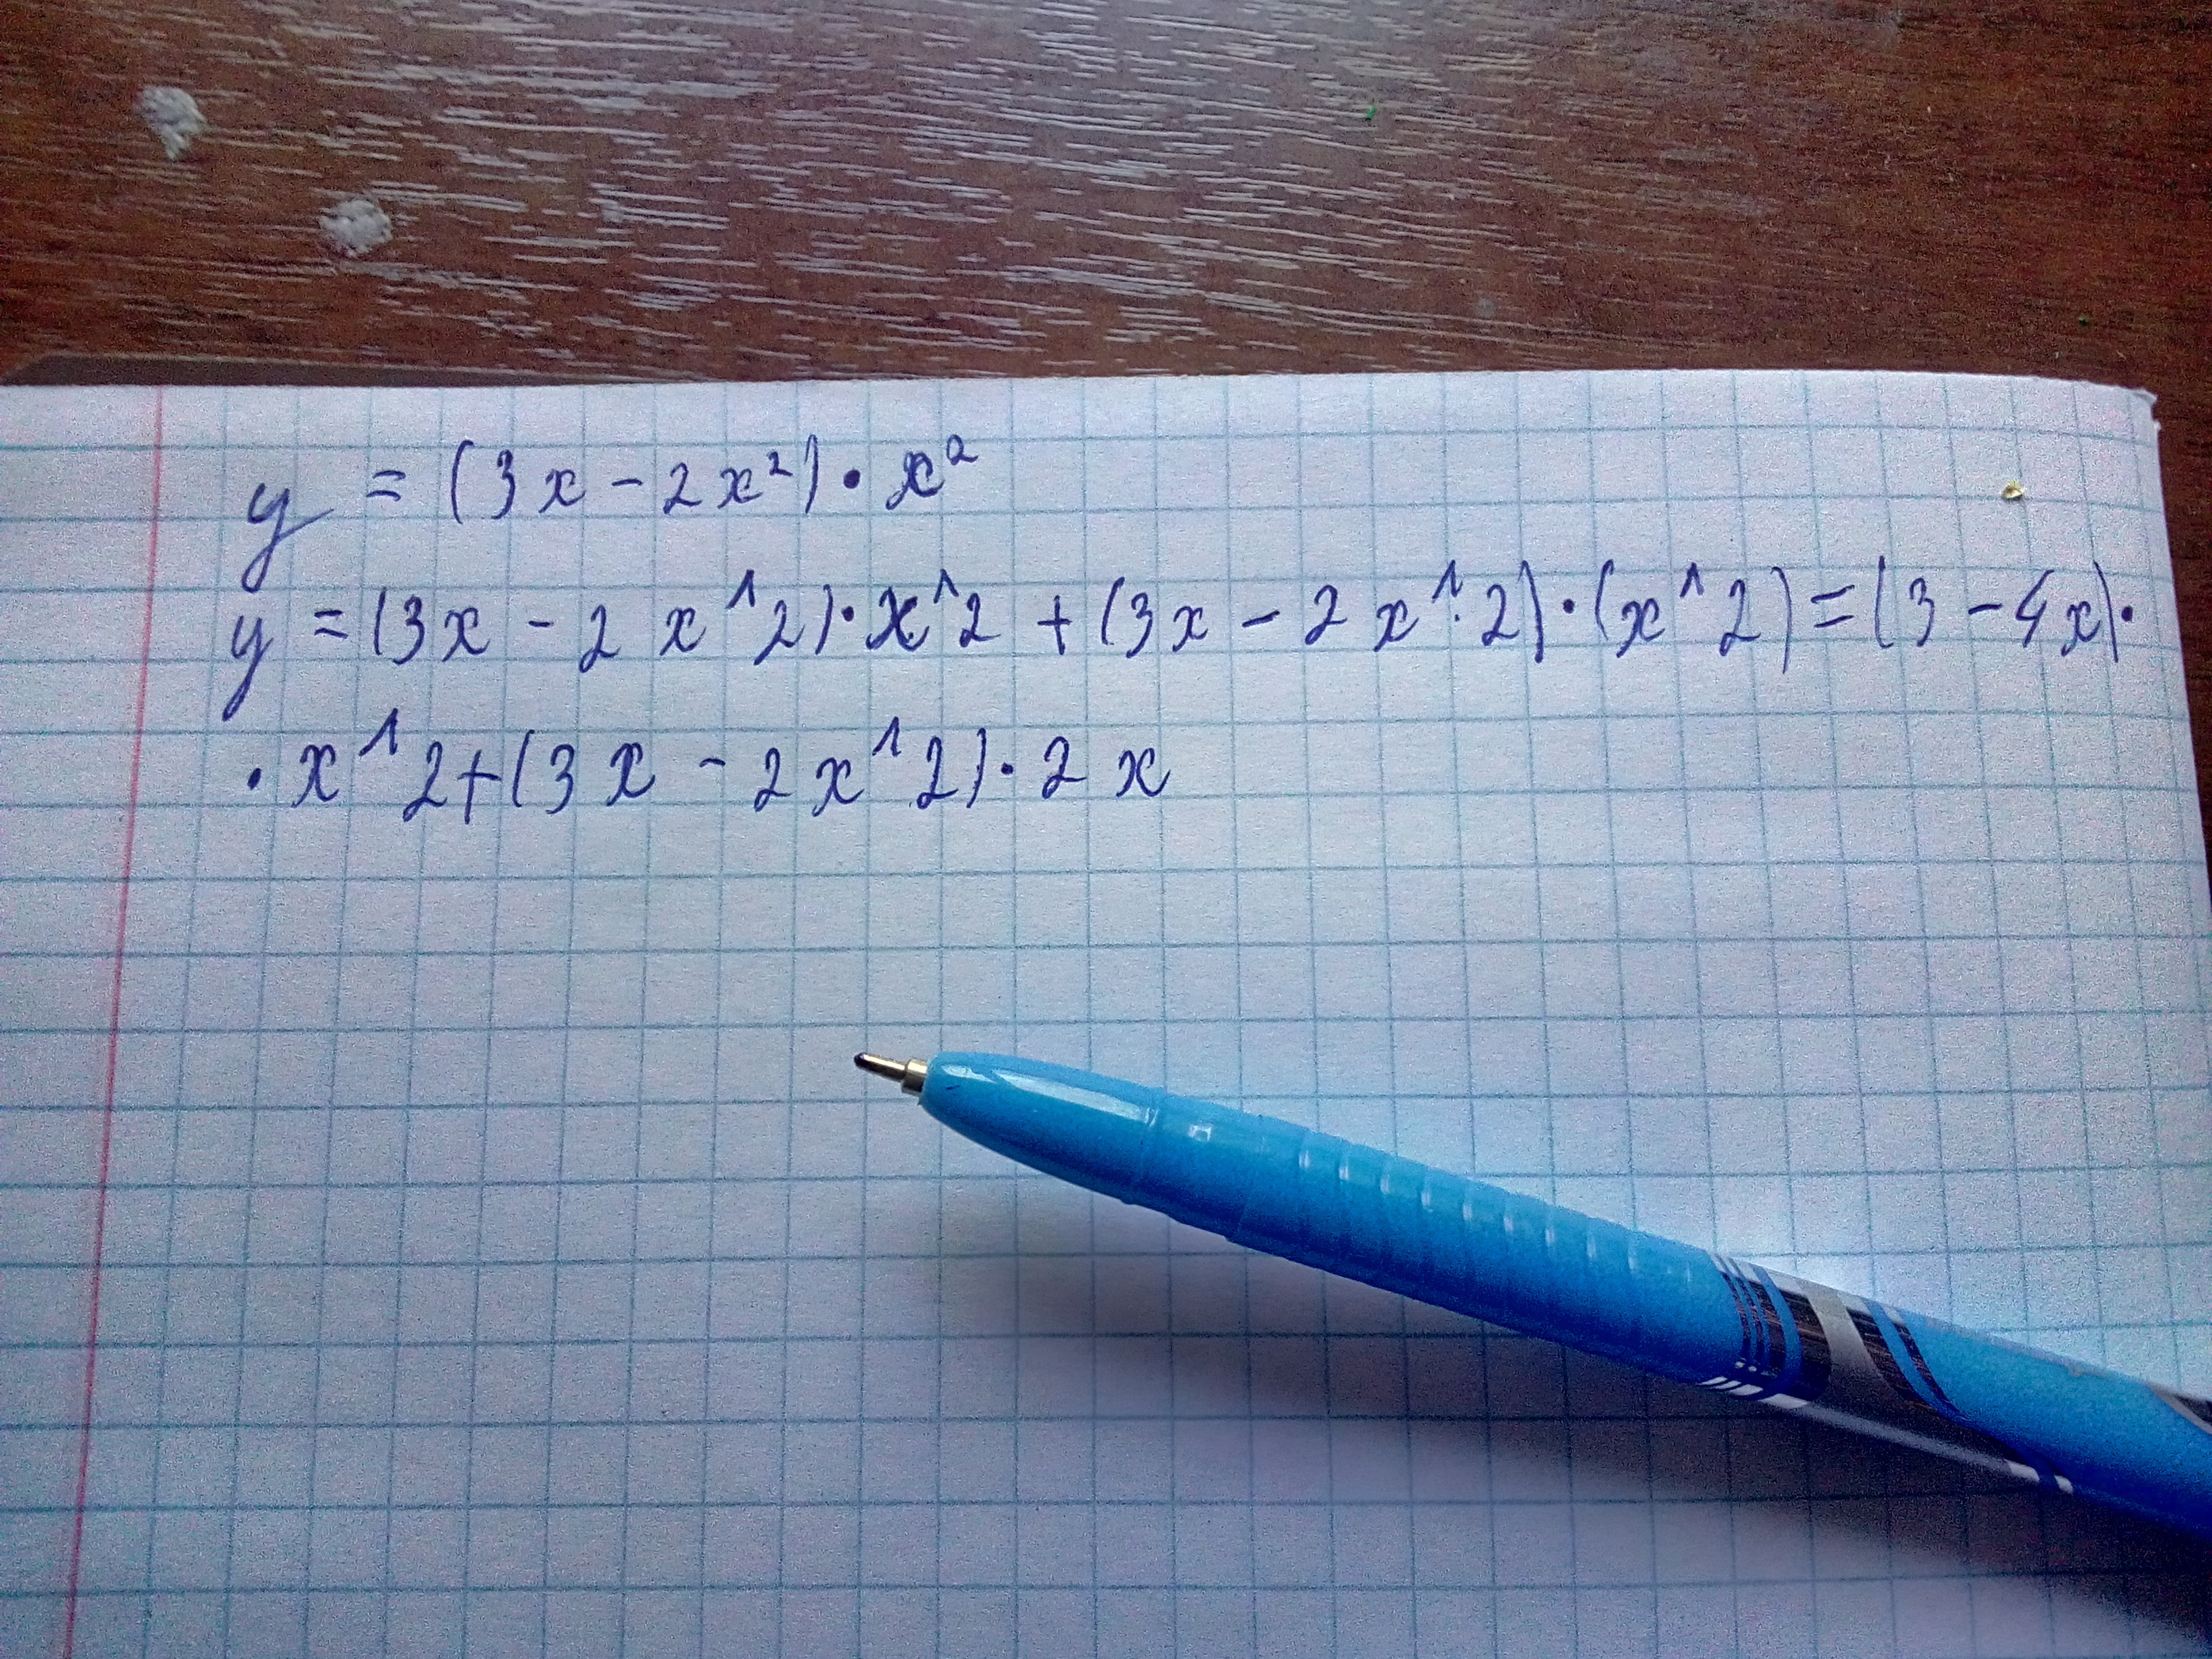 y = (3x - 2x²) · x²
y = (3x - 2x^2) · x^2 + (3x - 2x^2) · (x^2) = (3 - 4x) ·
· x^2 + (3x - 2x^2) · 2x